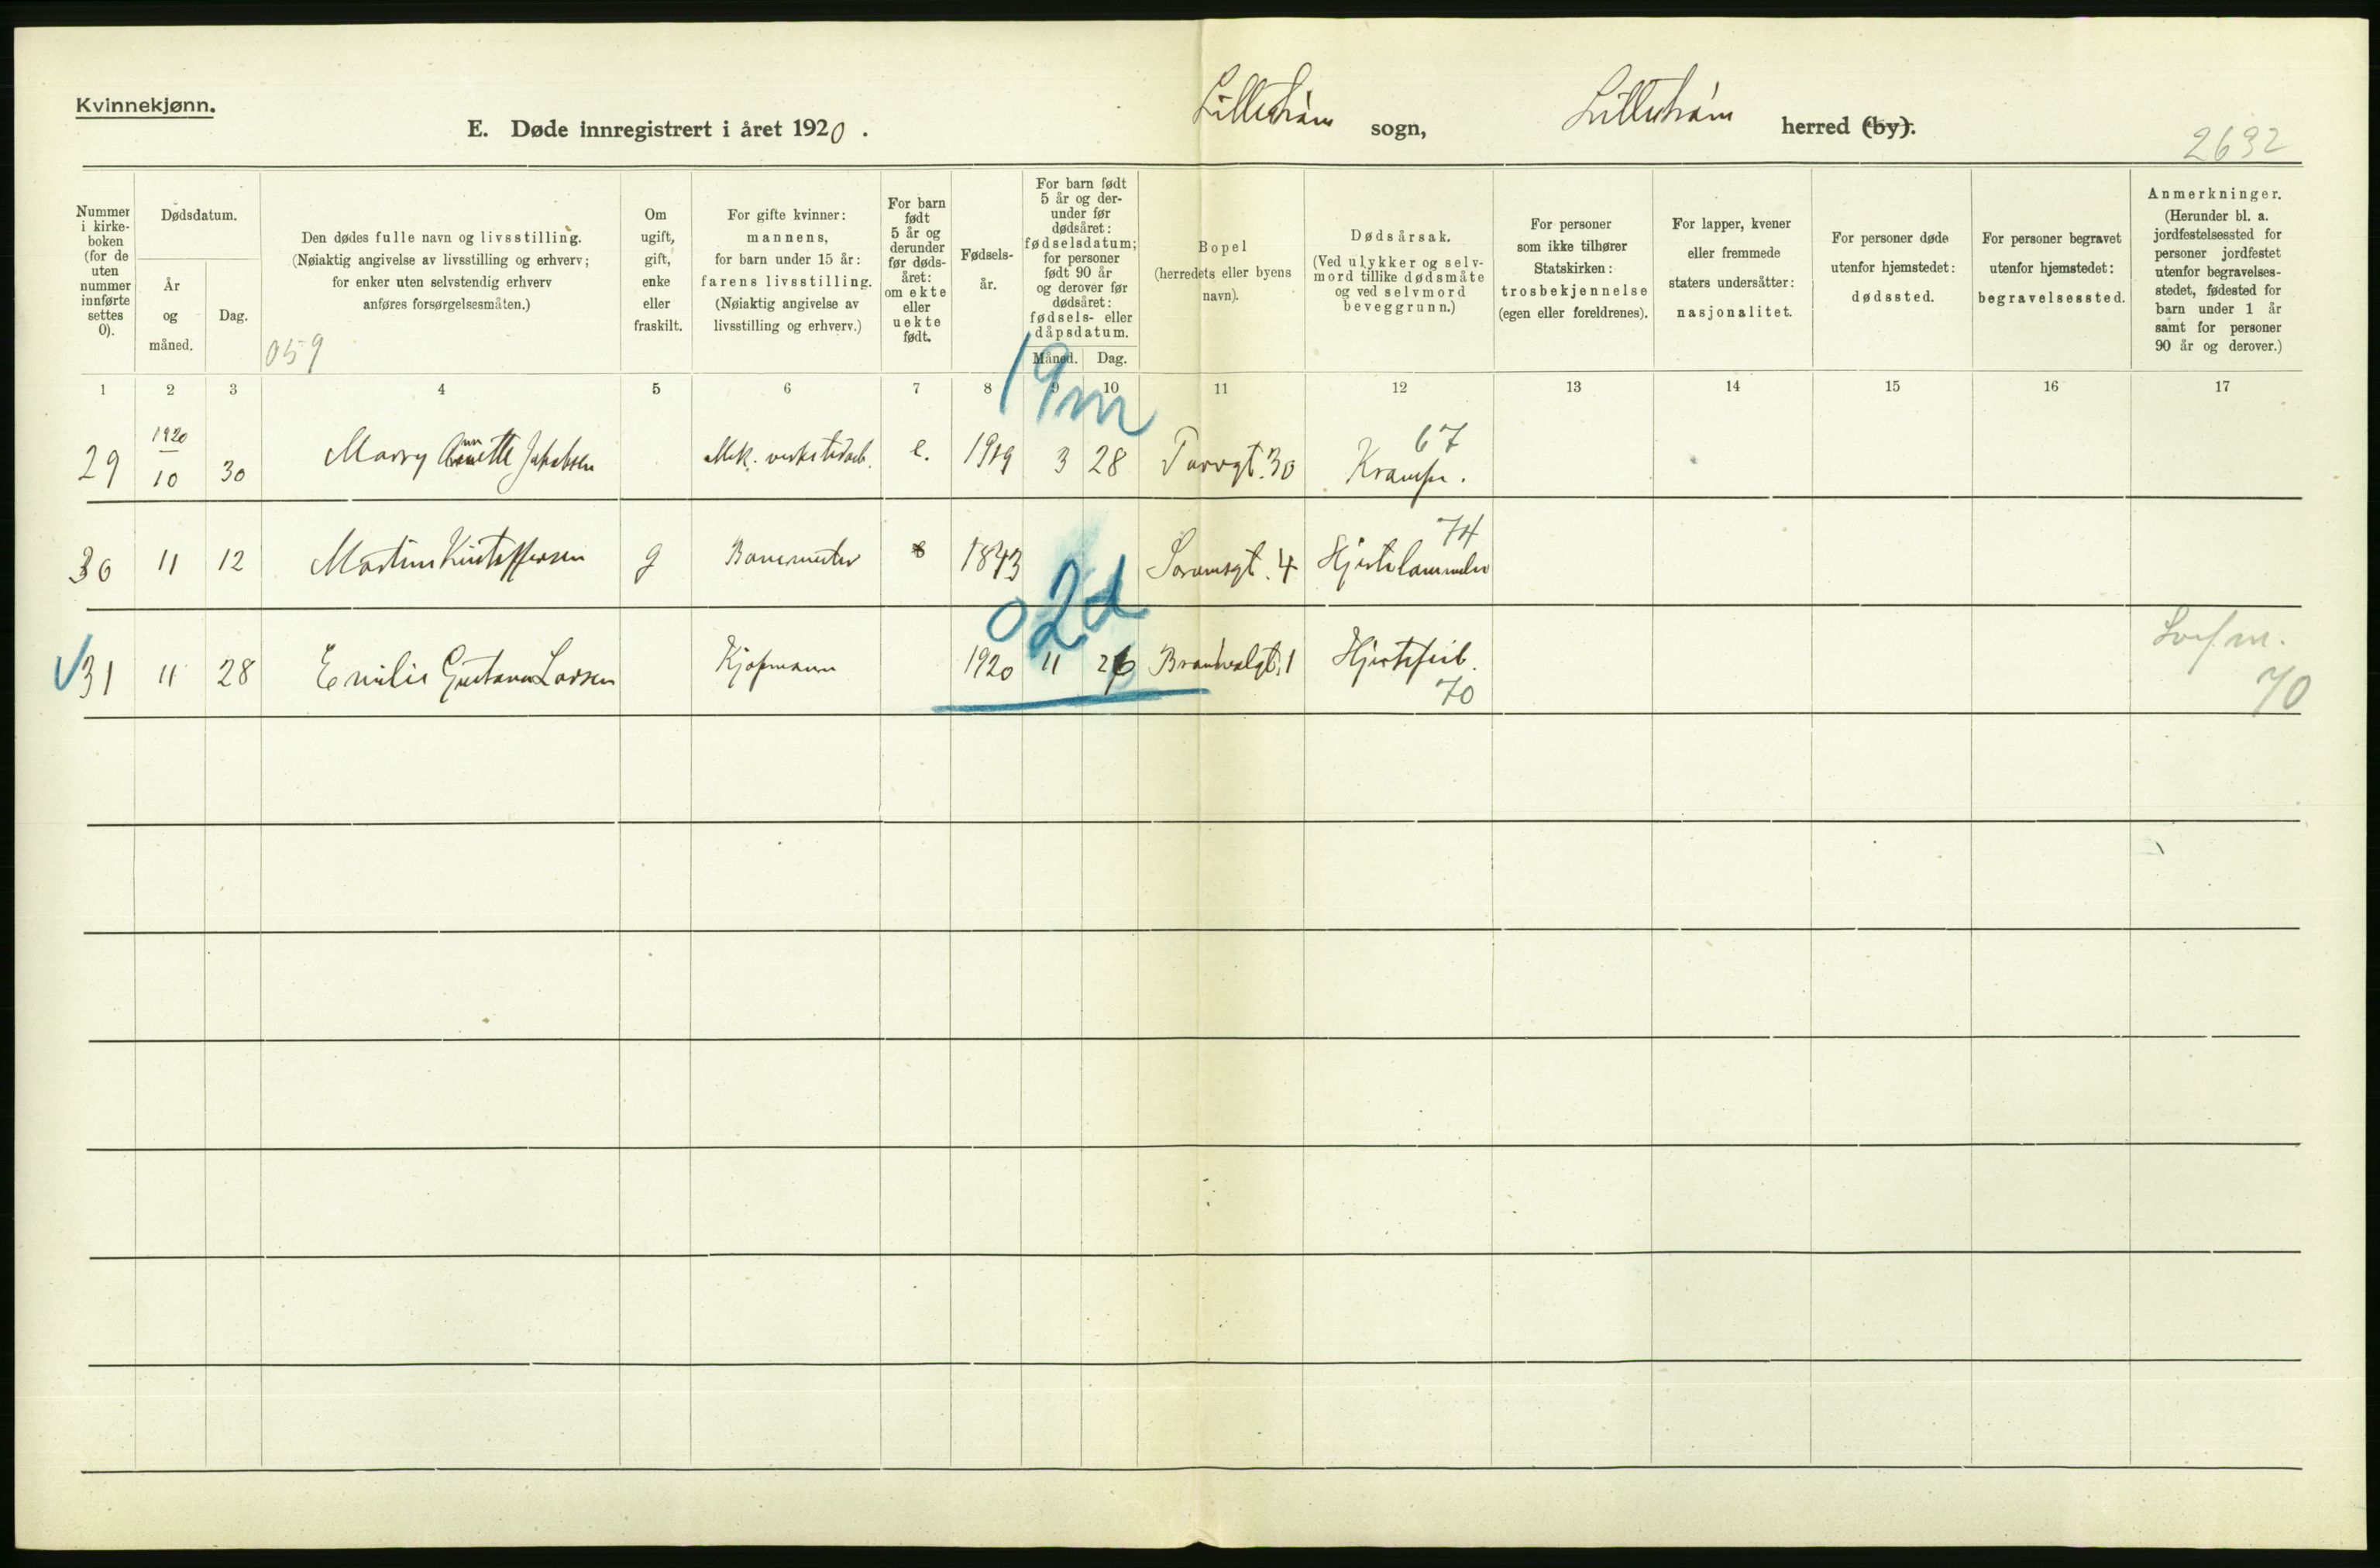 Kvinnekjønn.
E. Døde innregistrert i året 1920.
Lillestrøm sogn, Lillestrøm herred (by).
2632
Nummer i kirke-
boken
(for de
uten
nummer
innførte
settes
0).
Dødsdatum.
År
og
måned.
Dag.
Den dødes fulle navn og livsstilling.
(Nøiaktig angivelse av livsstilling og erhverv;
for enker uten selvstendig erhverv
anføres forsørgelsesmåten.)
059
Om
ugift,
gift,
enke
eller
fraskilt.
For gifte kvinner:
mannens,
for barn under 15 år:
farens livsstilling.
(Nøiaktig angivelse av
livsstilling og erhverv.)
For barn
født
5 år og
derunder
før døds-
året:
om ekte
eller
uekte
født.
Fødsels-
år.
For barn født
5 år og der-
under før
dødsåret:
fødselsdatum;
for personer
født 90 år
og derover før
dødsåret:
fødsels- eller
dåpsdatum.
Måned. Dag.
Bopel
(herredets eller byens
navn).
Dødsårsak.
(Ved ulykker og selv-
mord tillike dødsmåte
og ved selvmord
beveggrunn.)
For personer
som ikke tilhører
Statskirken:
trosbekjennelse
(egen eller foreldrenes).
For lapper, kvener
eller fremmede
staters undersåtter:
nasjonalitet.
For personer døde
utenfor hjemstedet:
dødssted.
For personer begravet
utenfor hjemstedet:
begravelsessted.
Anmerkninger.
(Herunder bl. a.
jordfestelsessted for
personer jordfestet
utenfor begravelses-
stedet, fødested for
barn under 1 år
samt for personer
90 år og derover.)
1 2 3 4 5 6 7 8 9 10 11 12 13 14 15 16 17
19m
1920
67
29 10 30 Marry Annette Jakobsen Mek. verkstedarb. e. 1919 3 28 Torvgt. 30 Krampe.
74
30 11 12 Martine Kristoffersen g Banemester 1843 4 Hjertelammelse
0 2d
31 11 28 Emilie Gustava Larsen Kjøpmann 1920 11 26 1 Hjertefeil.
70
70